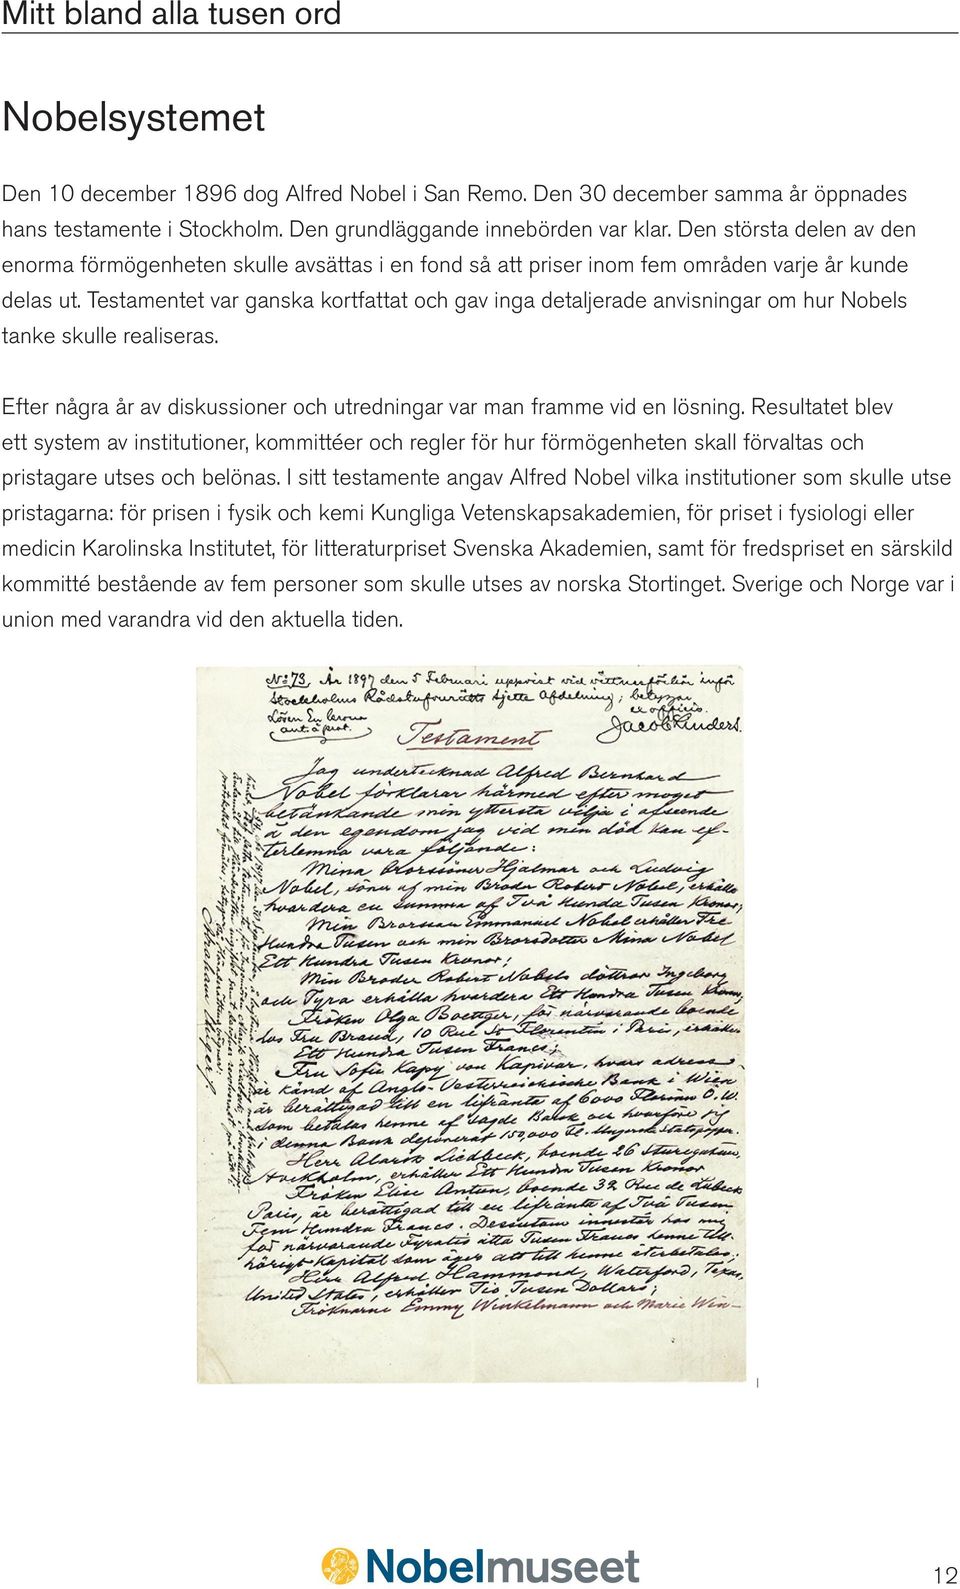 Mitt bland alla tusen ord
Nobelsystemet
Den 10 december 1896 dog Alfred Nobel i San Remo. Den 30 december samma år öppnades
hans testamente i Stockholm. Den grundläggande innebörden var klar. Den största delen av den
enorma förmögenheten skulle avsättas i en fond så att priser inom fem områden varje år kunde
delas ut. Testamentet var ganska kortfattat och gav inga detaljerade anvisningar om hur Nobels
tanke skulle realiseras.
Efter några år av diskussioner och utredningar var man framme vid en lösning. Resultatet blev
ett system av institutioner, kommittéer och regler för hur förmögenheten skall förvaltas och
pristagare utses och belönas. I sitt testamente angav Alfred Nobel vilka institutioner som skulle utse
pristagarna: för prisen i fysik och kemi Kungliga Vetenskapsakademien, för priset i fysiologi eller
medicin Karolinska Institutet, för litteraturpriset Svenska Akademien, samt för fredspriset en särskild
kommitté bestående av fem personer som skulle utses av norska Stortinget. Sverige och Norge var i
union med varandra vid den aktuella tiden.
No 73. År 1897 den 5 Februari uppvist vid vittnesförhör inför
Stockholms Rådstufvurätts Sjette Afdelning; betygar
ex officio.
Testament
Jag undertecknad Alfred Bernhard
Nobel förklarar härmed efter moget
betänkande min yttersta vilja i afseende
å den egendom jag vid min död kan ef-
terlemna vara följande:
Mina Brorsöner Hjalmar och Ludvig
Nobel, söner af min Broder Robert Nobel, erhålla
hvardera en summa af Två Hundra Tusen Kronor;
Min Brorson Emmanuel Nobel erhåller Tre
Hundra Tusen och min Brorsdotter Mina Nobel
Ett Hundra Tusen Kronor;
Min Broder Robert Nobels döttrar Ingeborg
och Tyra erhålla hvardera Ett Hundra Tusen Kronor;
Fröken Olga Boettger, för närvarande boende
hos Fru Brand, 10 Rue St Florentin i Paris, erhåller
Ett Hundra Tusen Francs;
Fru Sofie Kapy von Kapivar, hvars adress
är känd af Anglo-Oesterreichische Bank i Wien
är berättigad till en lifränta af 6000 Florins Ö.W.
som betalas henne af sagde Bank och hvarföre jag
i denna Bank deponerat 150,000 Fl. i Ungerska Statspapper.
Herr Alarik Liedbeck, boende 26 Sturegatan,
Stockholm, erhåller Ett Hundra Tusen Kronor
Fröken Elise Antun, boende 32 Rue de Lubeck
Paris, är berättigad till en lifränta af Två Tusen
Fem Hundra Francs. Dessutom innestår hos mig
för närvarande Fyratio åtta Tusen Francs henne till-
hörigt Kapital som äger att till henne återbetalas;
Herr Alfred Hammond, Waterford, Texas,
United States, erhåller Tio Tusen Dollars;
Fröknarne Emmy Winkelmann och Marie Win-
Nobelmuseet
12